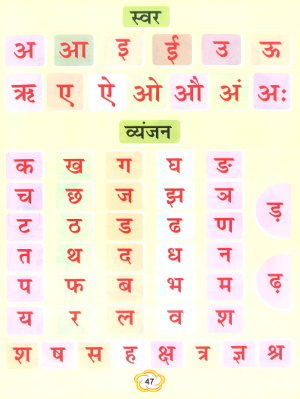 स्वर
अ आ इ ई उ ऊ
ऋ ए ऐ ओ औ अं अः
व्यंजन
क ख ग घ ङ
च छ ज झ ञ
ड़
ट ठ ड ढ ण
त थ द ध न
ढ़
प फ ब भ म
य र ल व श
श ष स ह क्ष त्र ज्ञ श्र
47